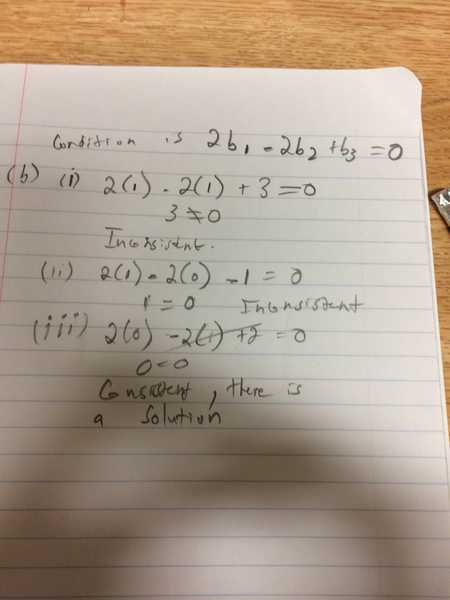 Condition is 2b1 - 2b2 + b3 = 0
(b) (i) 2(1) - 2(1) + 3 = 0
3 ≠ 0
Inconsistent.
(ii) 2(1) - 2(0) - 1 = 0
1 = 0 Inconsistent
(iii) 2(0) - 2(1) + 2 = 0
0 = 0
Consistent, there is
a solution